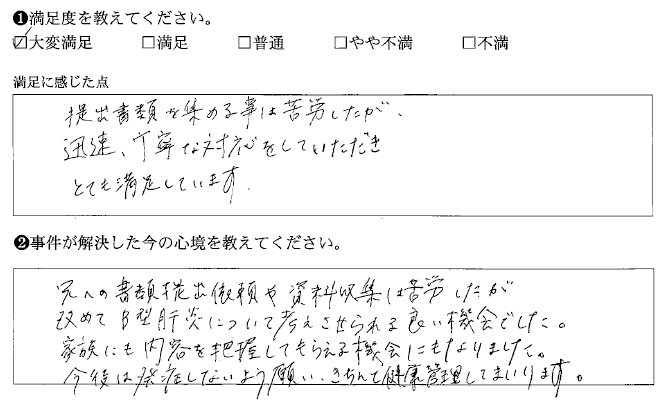 ❶満足度を教えてください。
☑大変満足 □満足 □普通 □やや不満 □不満
満足に感じた点
提出書類を集める事は苦労したが、
迅速、丁寧な対応をしていただき
とても満足しています。
❷事件が解決した今の心境を教えてください。
兄への書類提出依頼や資料収集は苦労したが
改めてB型肝炎について考えさせられる良い機会でした。
家族にも内容を把握してもらえる機会にもなりました。
今後は発症しないよう願い、きちんと健康管理してまいります。